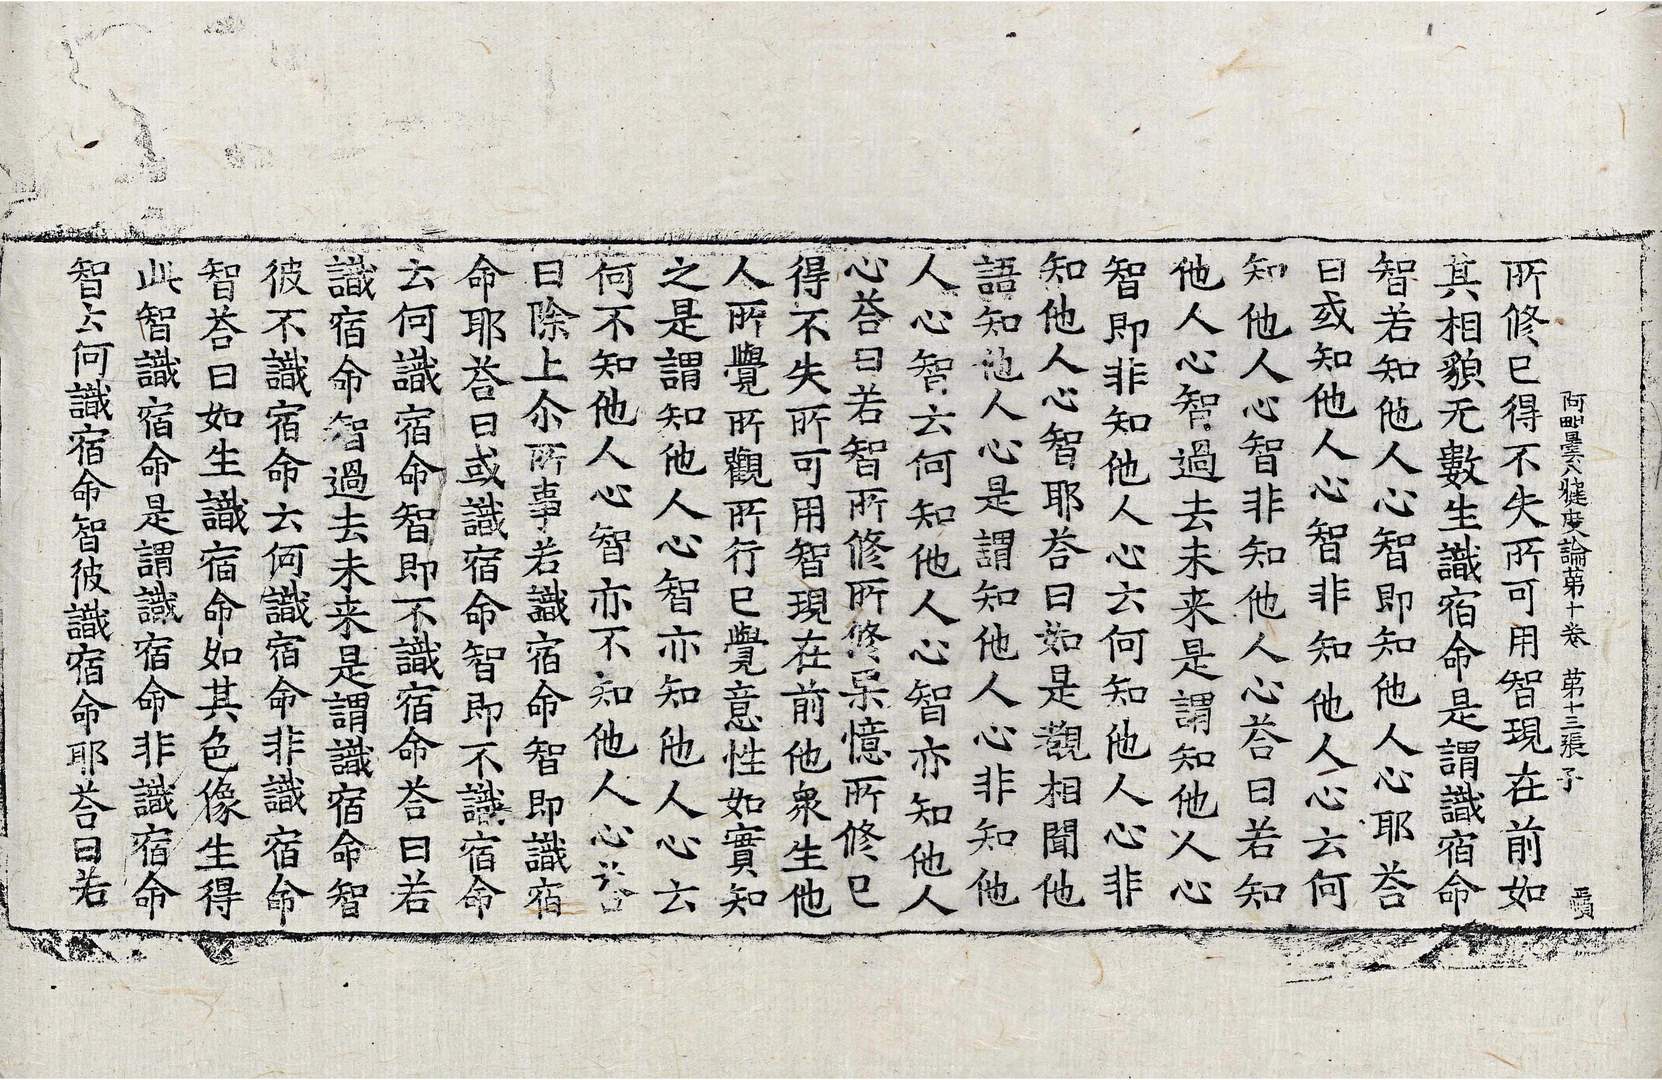 阿毗曇八揵度論苐十卷　苐十三張　子
所修已得不失所可用智現在前如
其相貌无數生識宿命是謂識宿命
智若知他人心智即知他人心耶荅
曰或知他人心智非知他人心云何
知他人心智非知他人心荅曰若知
他人心智過去未来是謂知他人心
智即非知他人心云何知他人心非
知他人心智耶荅曰如是觀相聞他
語知他人心是謂知他人心非知他
人心智云何知他人心智亦知他人
心荅曰若智所修所修果憶所修已
得不失所可用智現在前他衆生他
人所覺所觀所行已覺意性如實知
之是謂知他人心智亦知他人心云
何不知他人心智亦不知他人心荅
曰除上尒所事若識宿命智即識宿
命耶荅曰或識宿命智即不識宿命
云何識宿命智即不識宿命荅曰若
識宿命智過去未来是謂識宿命智
彼不識宿命云何識宿命非識宿命
智荅曰如生識宿命如其色像生得
此智識宿命是謂識宿命非識宿命
智云何識宿命智彼識宿命耶荅曰若